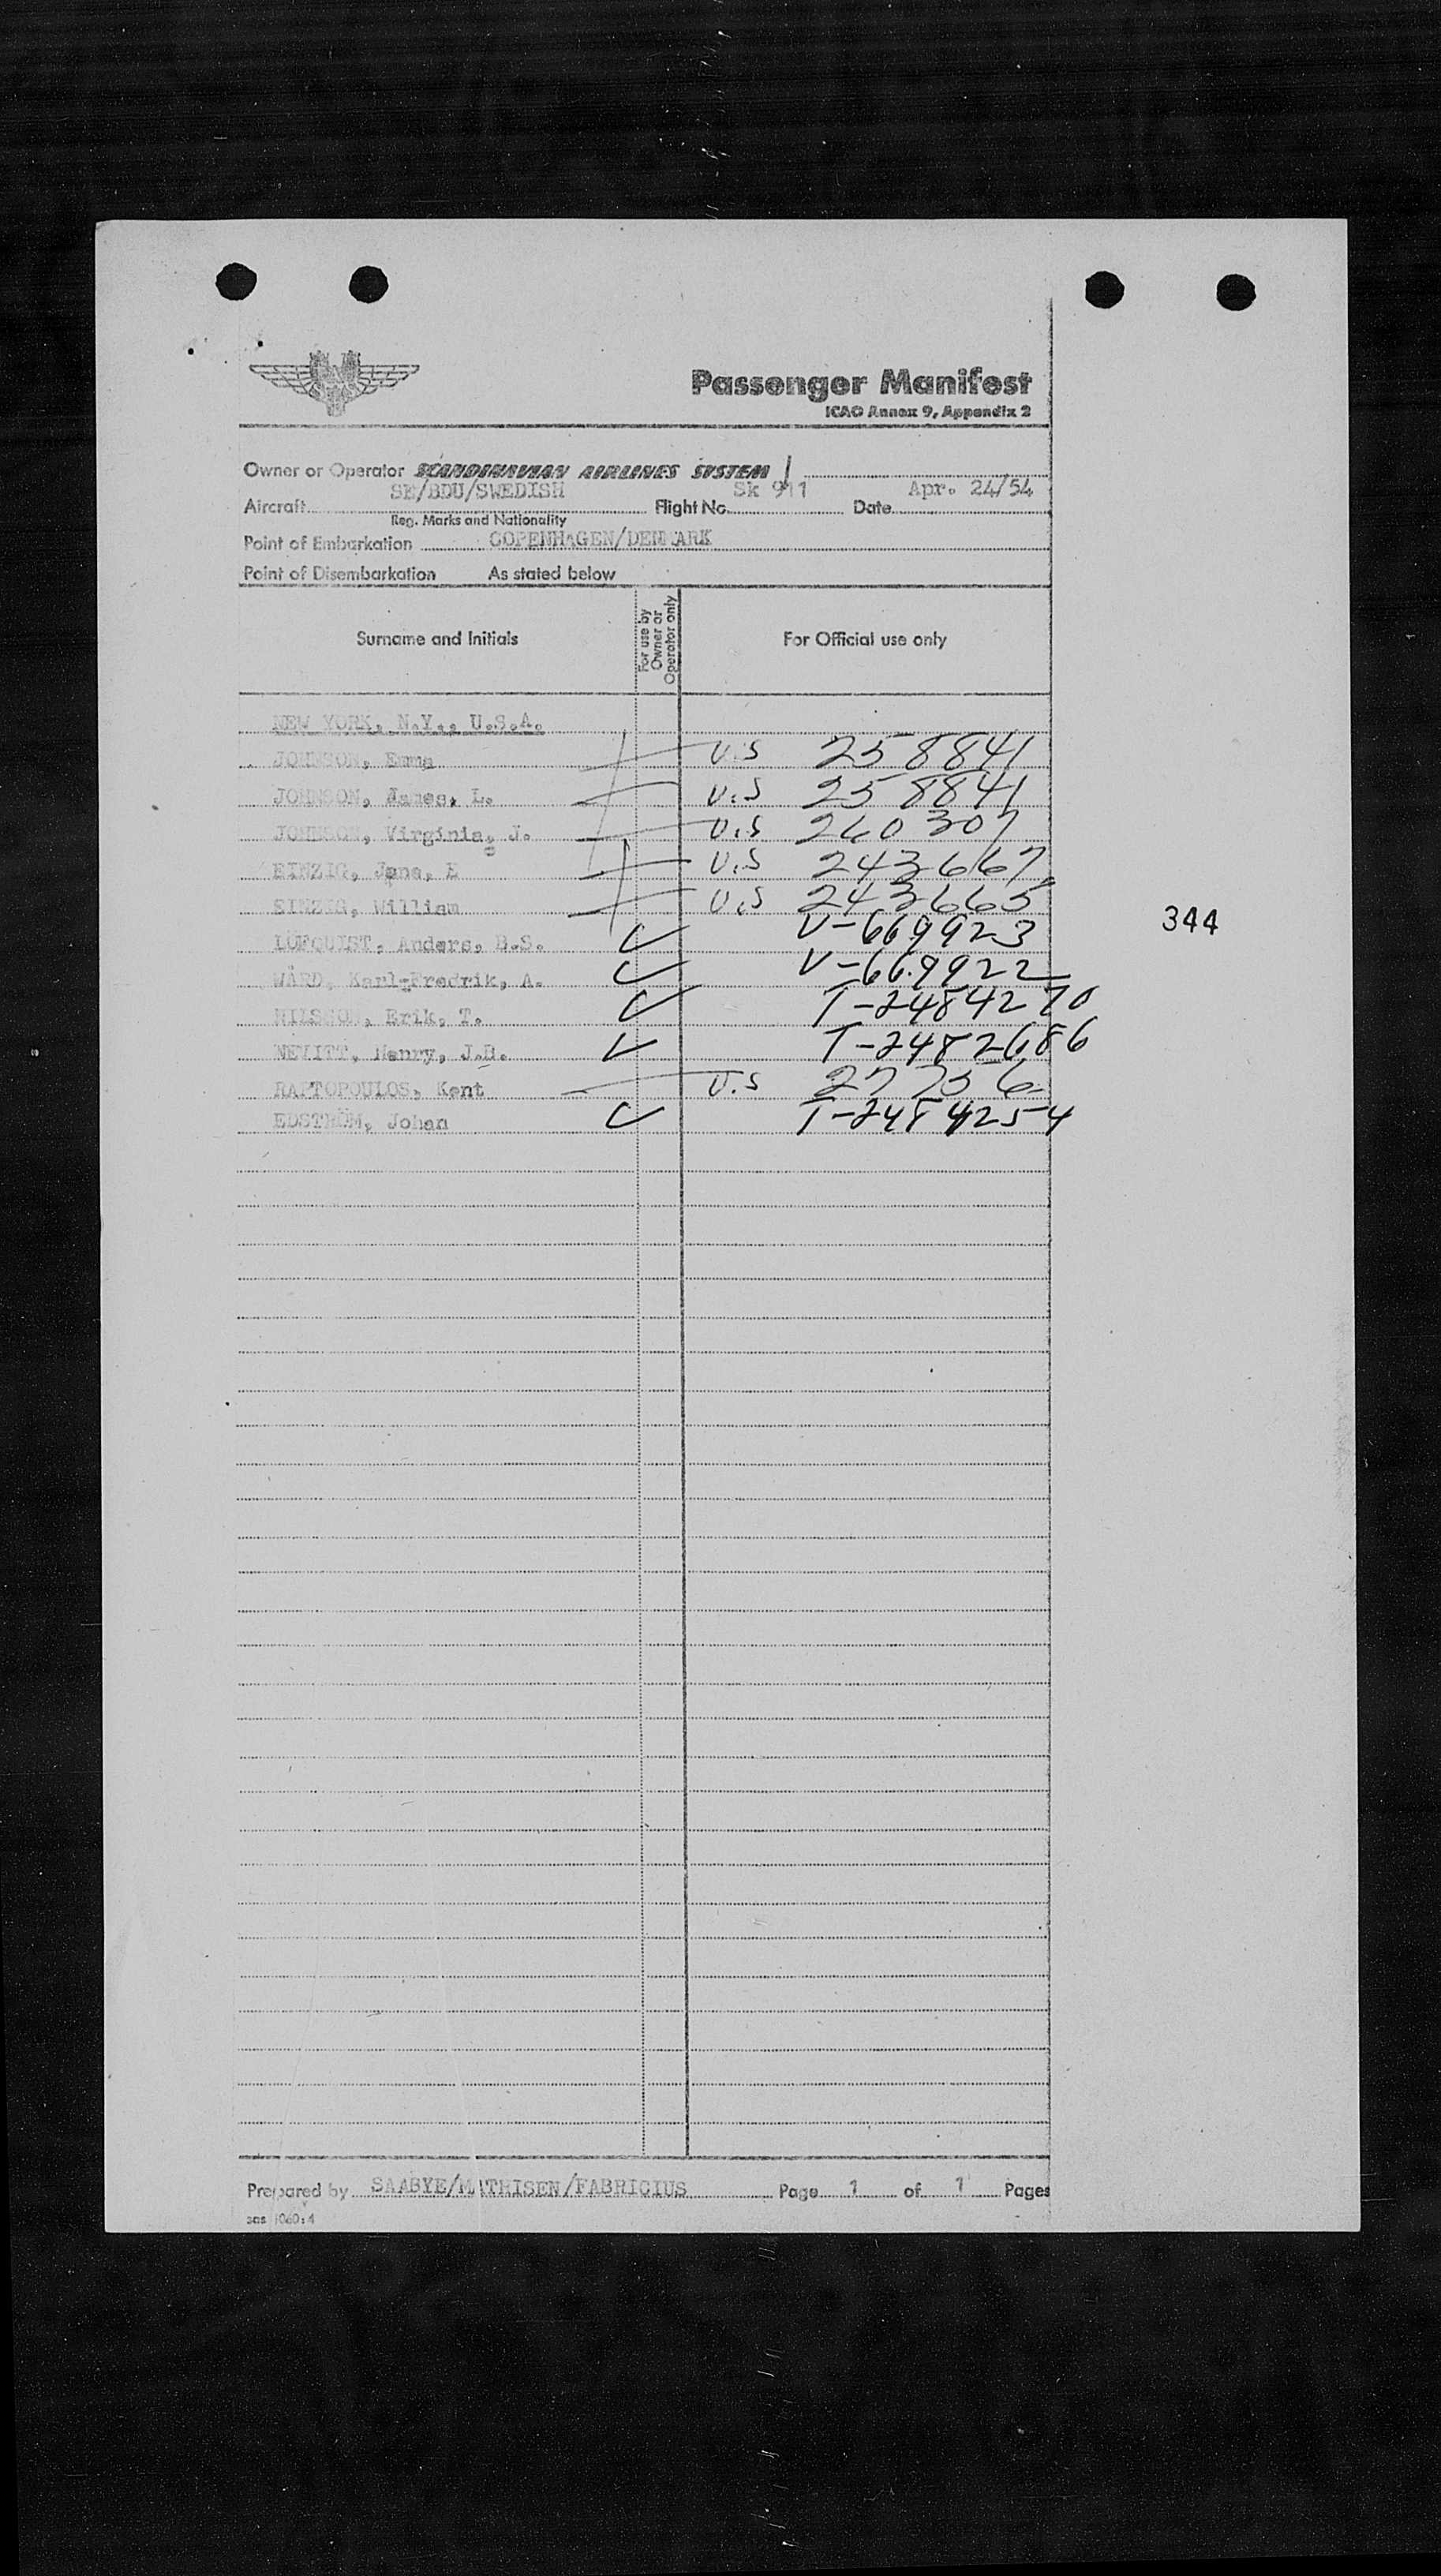 Passenger Manifest
ICAO Annex 9, Appendix 2
Owner or Operator SCANDINAVIAN AIRLINES SYSTEM
Aircraft SE/BDU/SWEDISH Flight No. Sk 911 Date Apr. 24/54
Reg. Marks and Nationality
Point of Embarkation COPENHAGEN/DENMARK
Point of Disembarkation As stated below
Surname and Initials For use by Owner or Operator only For Official use only
NEW YORK, N.Y., U.S.A.
JOHNSON, Emma U.S 258841
JOHNSON, James, L. U.S 258841
JOHNSON, Virginia, J. U.S 260307
Jane, E U.S 243667
William U.S 243665
LÖFQUIST, Anders, B.S. V-669923
WÄRD, Karl-Fredrik, A. V-669922
NILSSON, Erik, T. T-2484270
NEVITT, Henry, J.B. T-2482686
RAPTOPOULOS, Kent U.S 27756
EDSTRÖM, Johan T-2484254
344
Prepared by SAABYE/MATHISEN/FABRICIUS Page 1 of 1 Pages
sas 1060:4